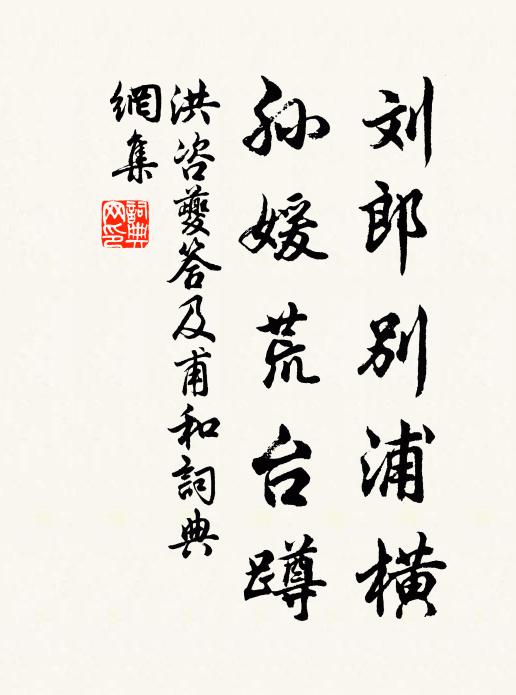 刘郎别浦横
孙媛荒台蹲
洪咨夔答及甫和詞典
網集
詞典
网印